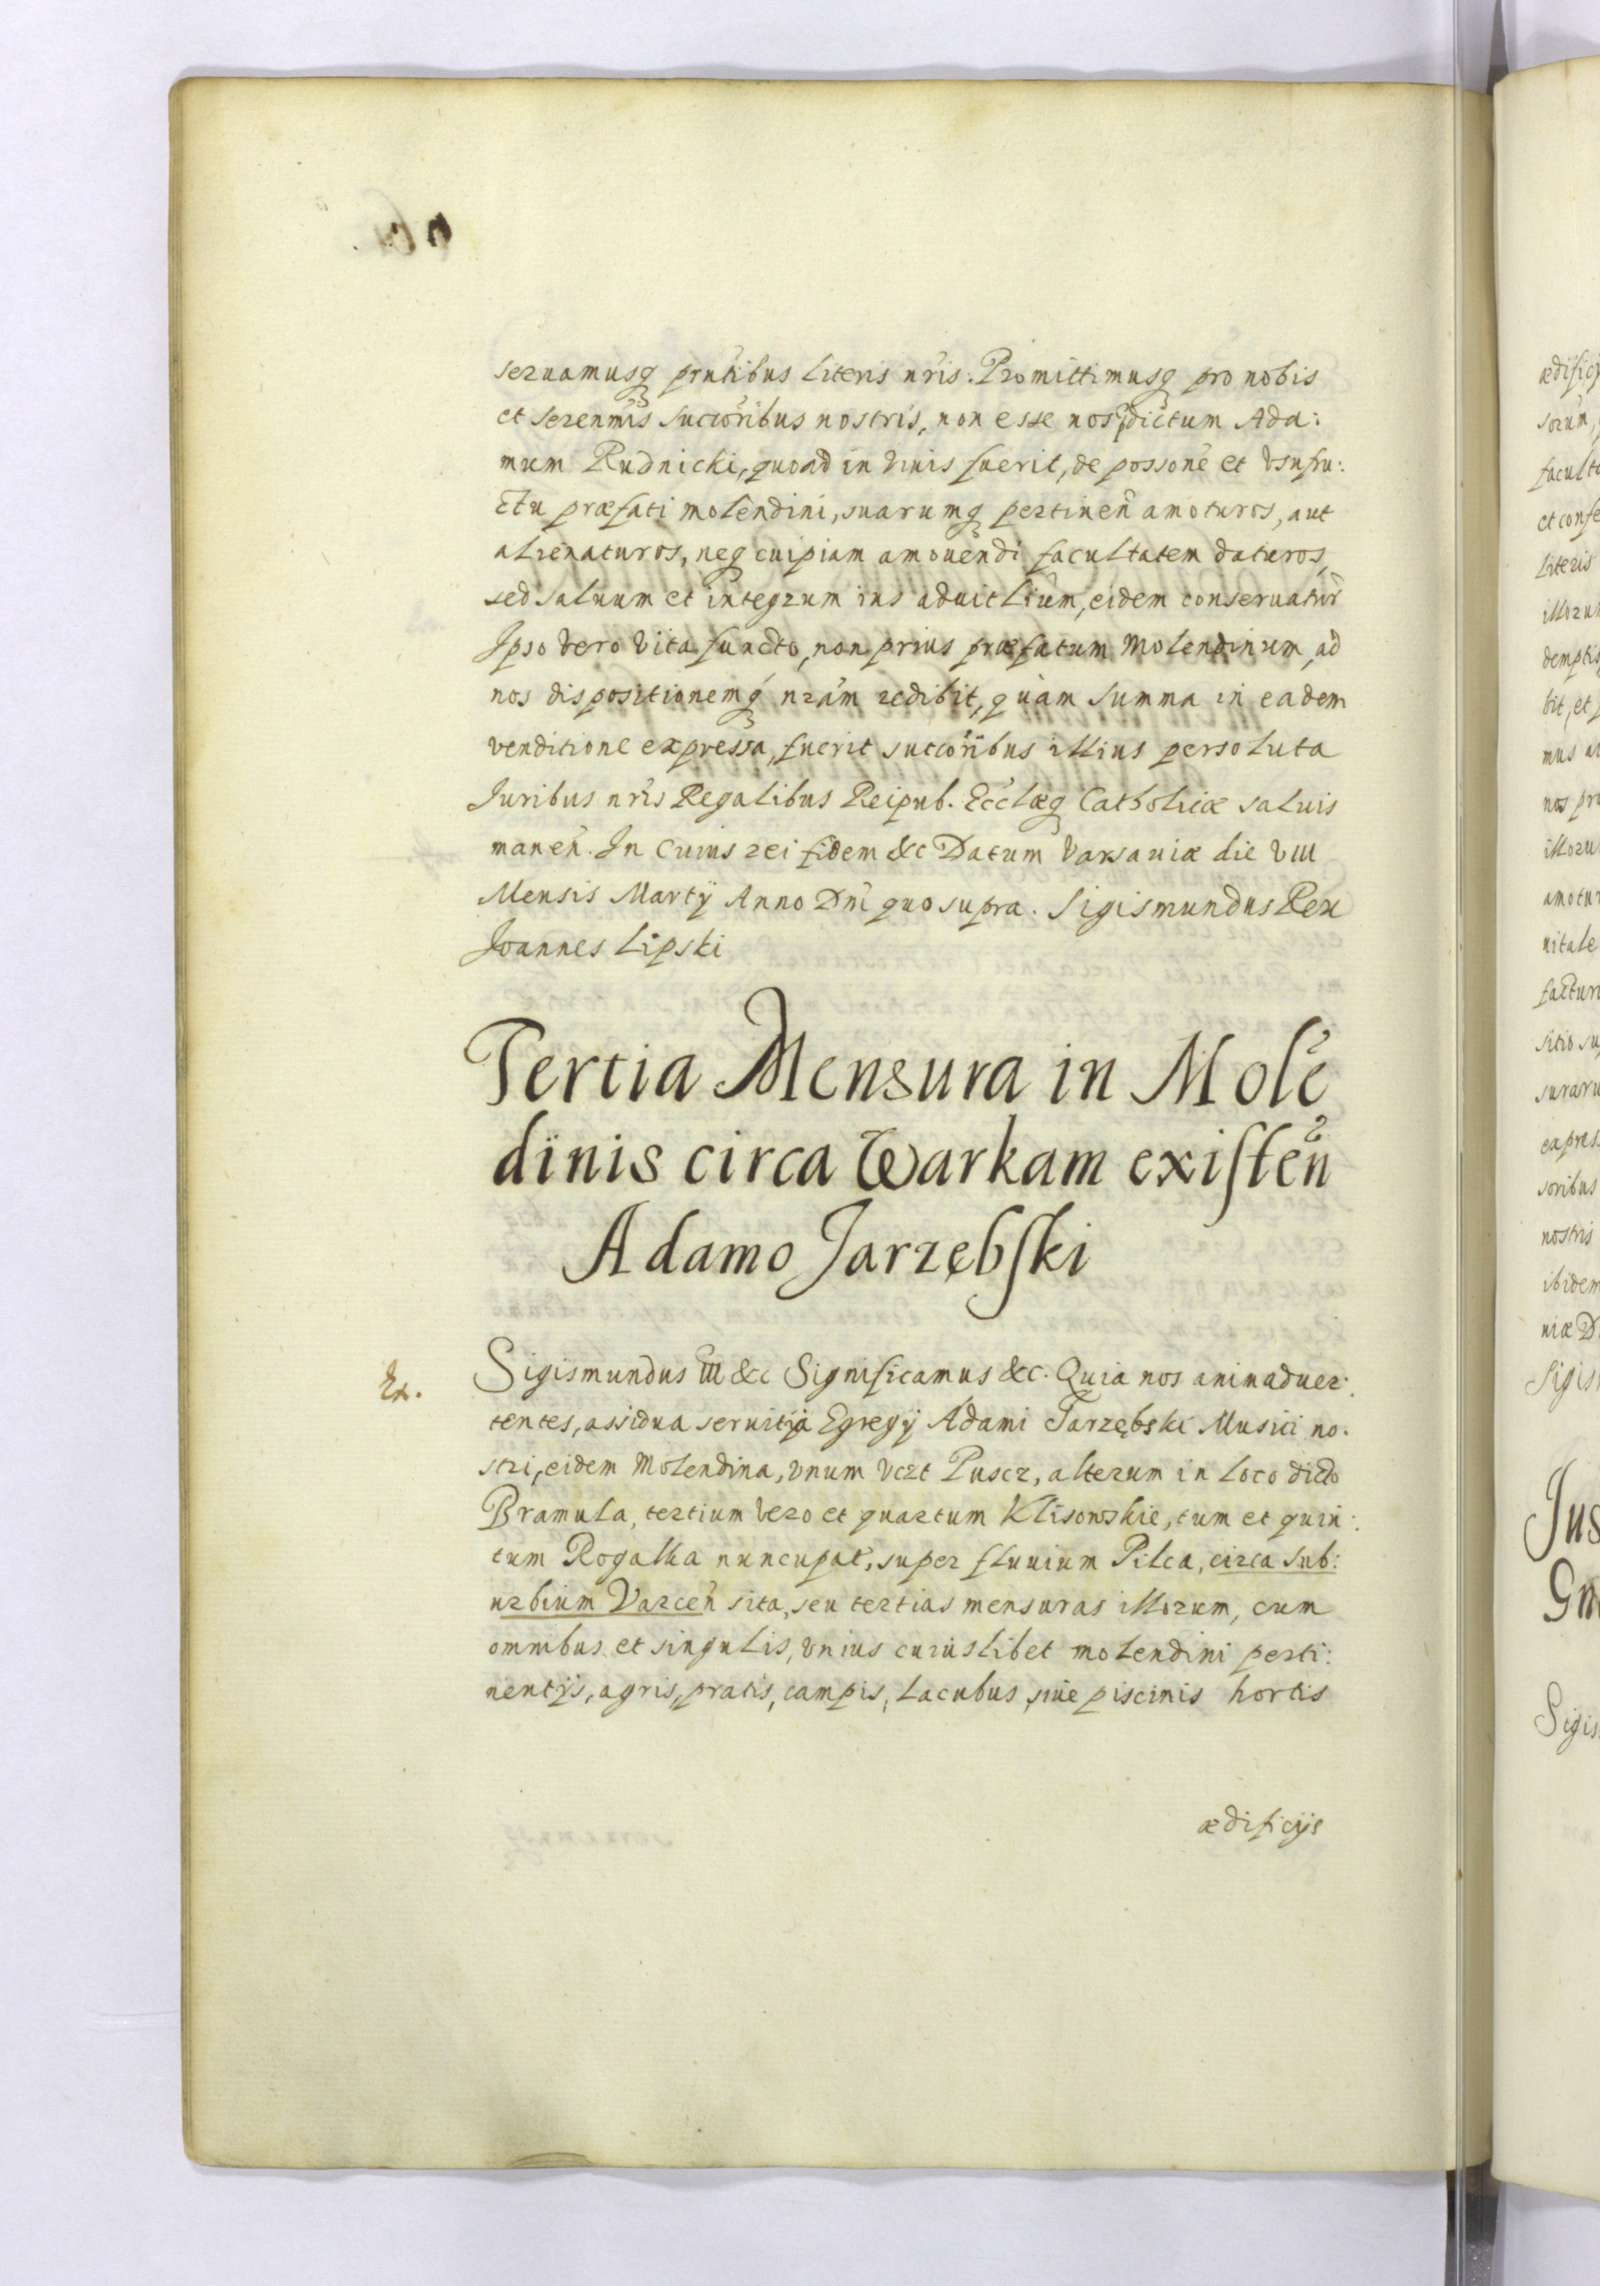 seruamusq prntibus literis nris. Promittimusq pro nobis
et serenmis succoribus nostris, non esse nos pdictum Ada:
mum Rudnicki, quoad in viuis fuerit, de possone et vsufru:
ctu præfati molendini, suarumq pertinen amoturos, aut
alienaturos, neq cuipiam amouendi facultatem daturos,
sed saluum et integrum ius aduitlium, eidem conseruatur
Ipso vero vita functo, non prius præfatum Molendinum, ad
nos dispositionemq nram redibit, quam summa in eadem
venditione expressa, fuerit succoribus illius persoluta
Iuribus nris Regalibus Reipub. Ecclæq Catholicæ saluis
manen. In Cuius rei fidem &c Datum Varsauiæ die VIII
Mensis Martij Anno Dni quo supra. Sigismundus Rex
Joannes Lipski
Tertia Mensura in Mole
dinis circa Warkam existen
Adamo Jarzębski
Ex.
Sigismundus III &c Significamus &c. Quia nos animaduer:
tentes, assidua seruitia Egregij Adami Jarzębski Musici no.
stri, eidem Molendina, vnum vert Puscz, alterum in loco dicto
Bramula, tertium vero et quartum Klisowskie, tum et quin:
tum Rogalka nuncupat, super fluuium Pilca, circa sub:
urbium Varcen sita, seu tertias mensuras illorum, cum
omnibus et singulis, vnius cuiuslibet molendini perti:
nentijs, agris, pratis, campis, lacubus, siue piscinis hortis
ædificijs